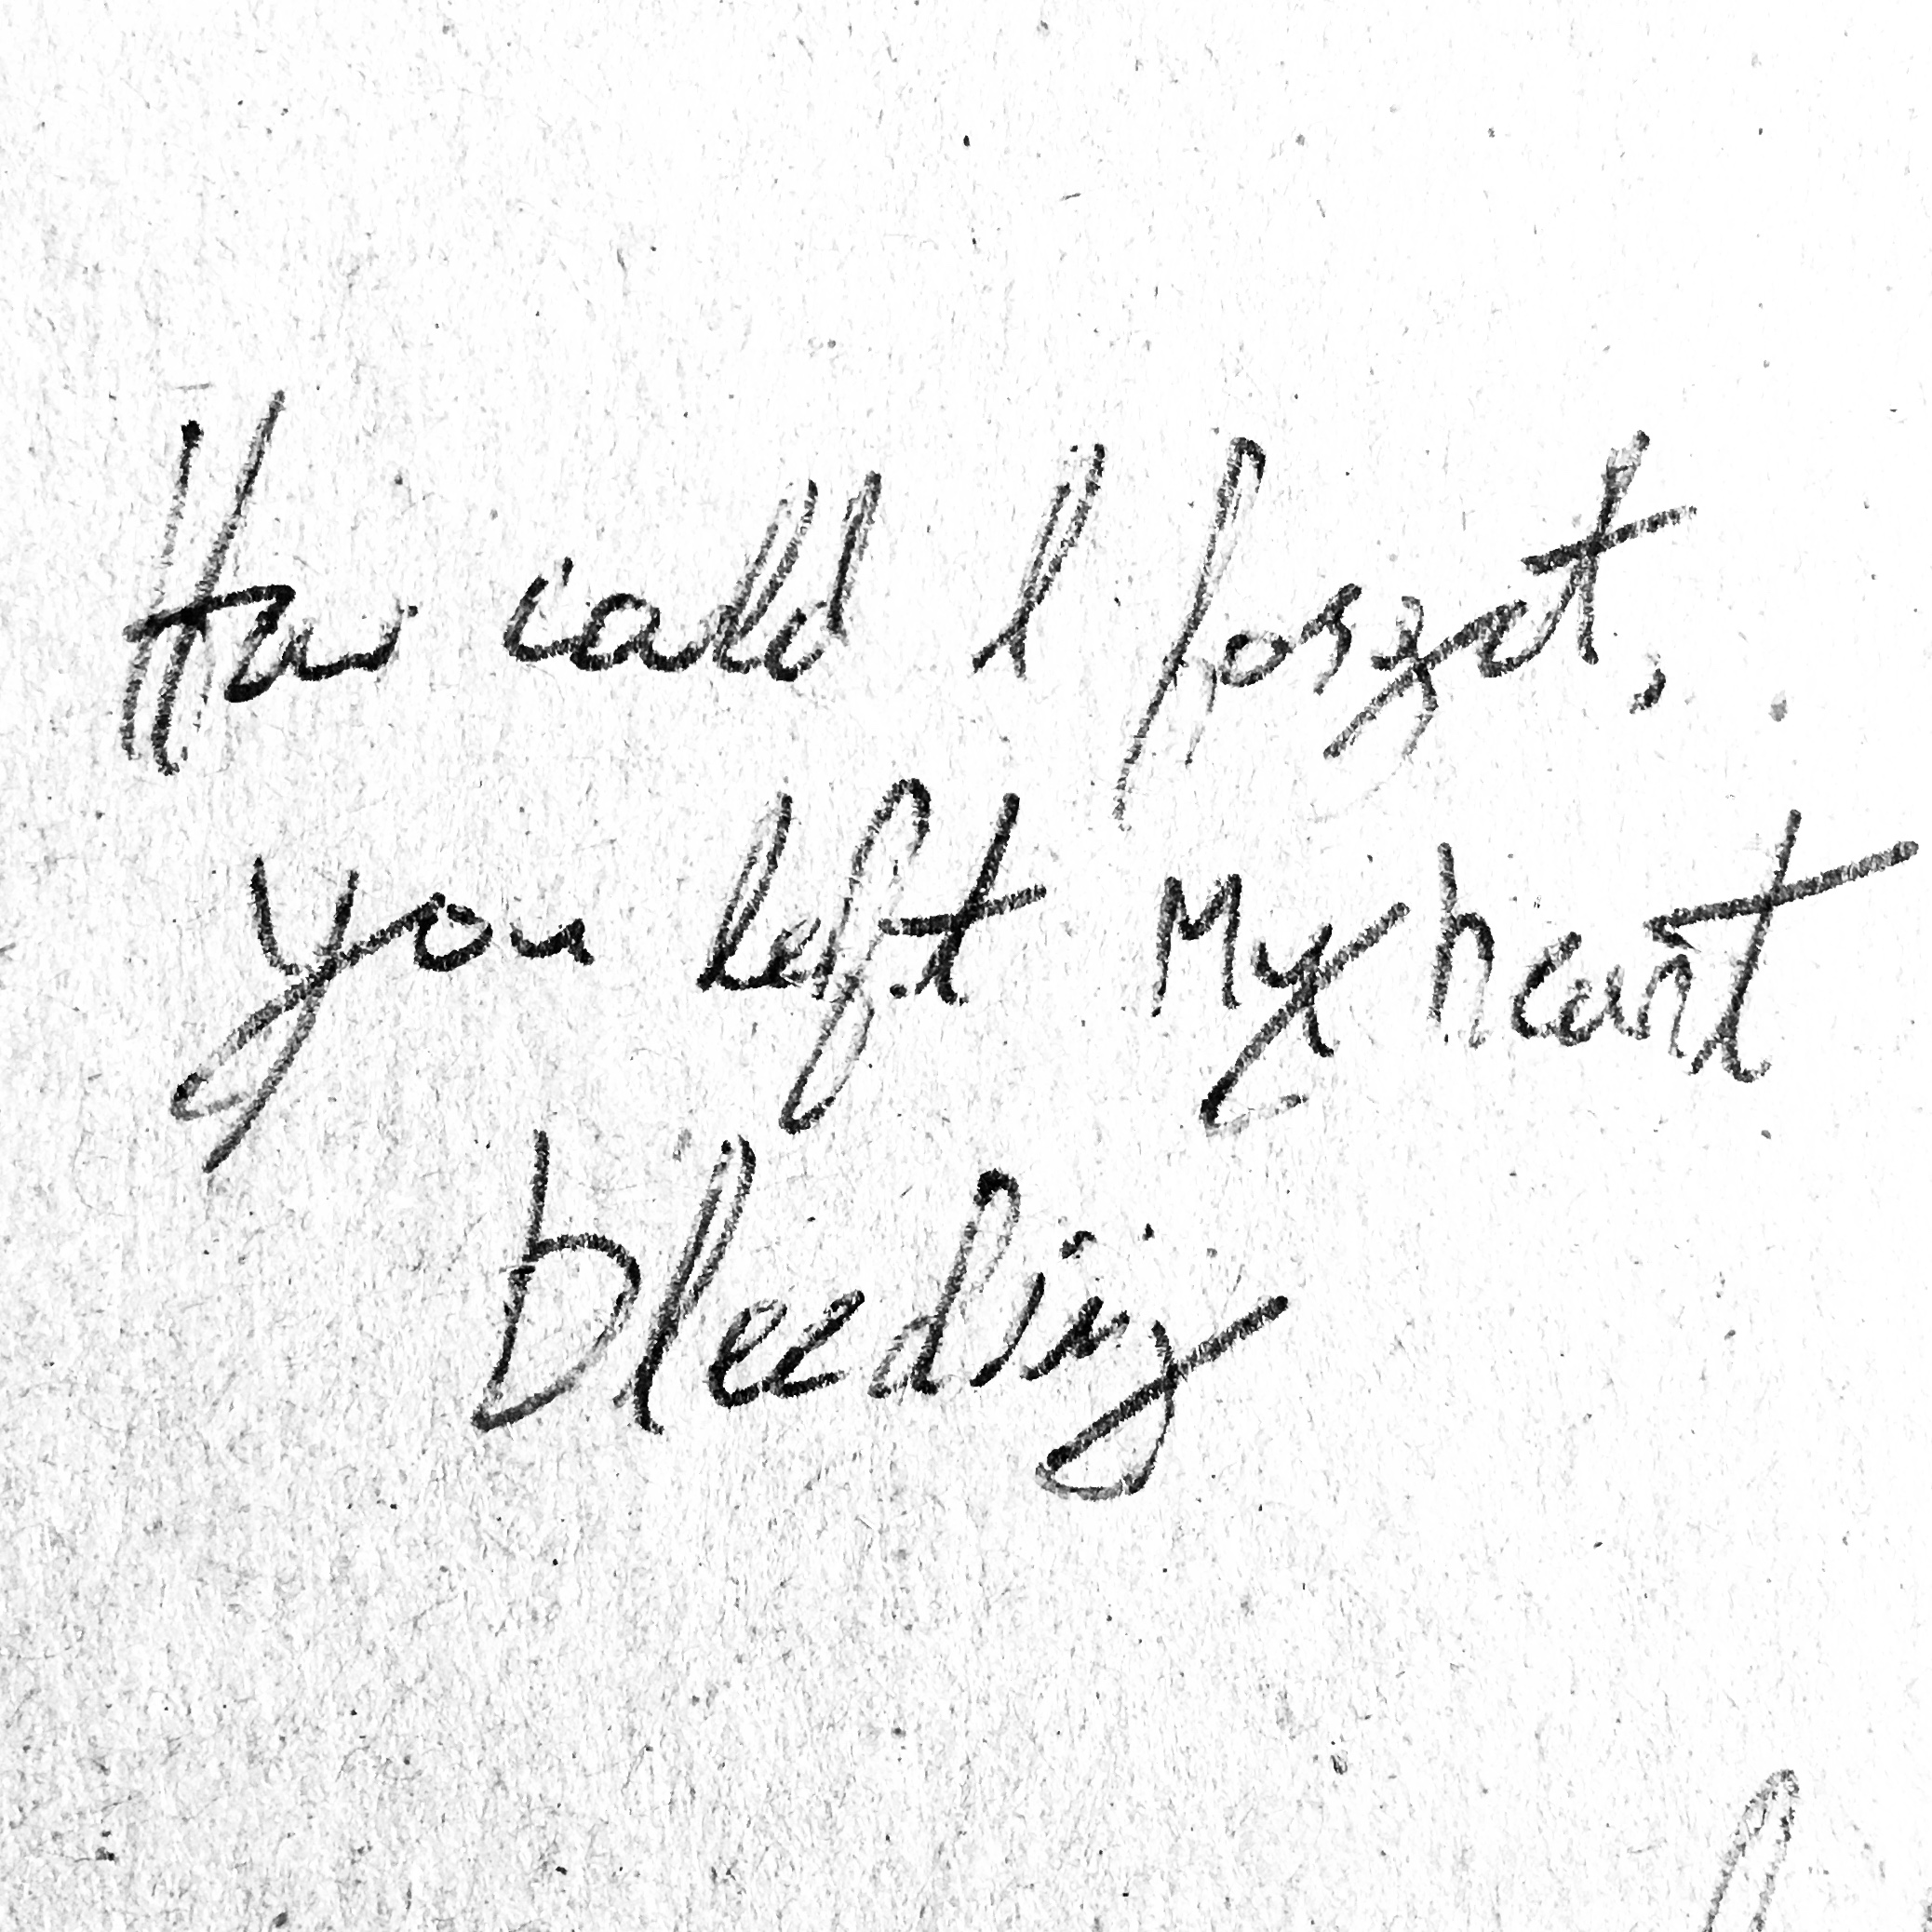 How could I forget,
you left My heart
bleeding